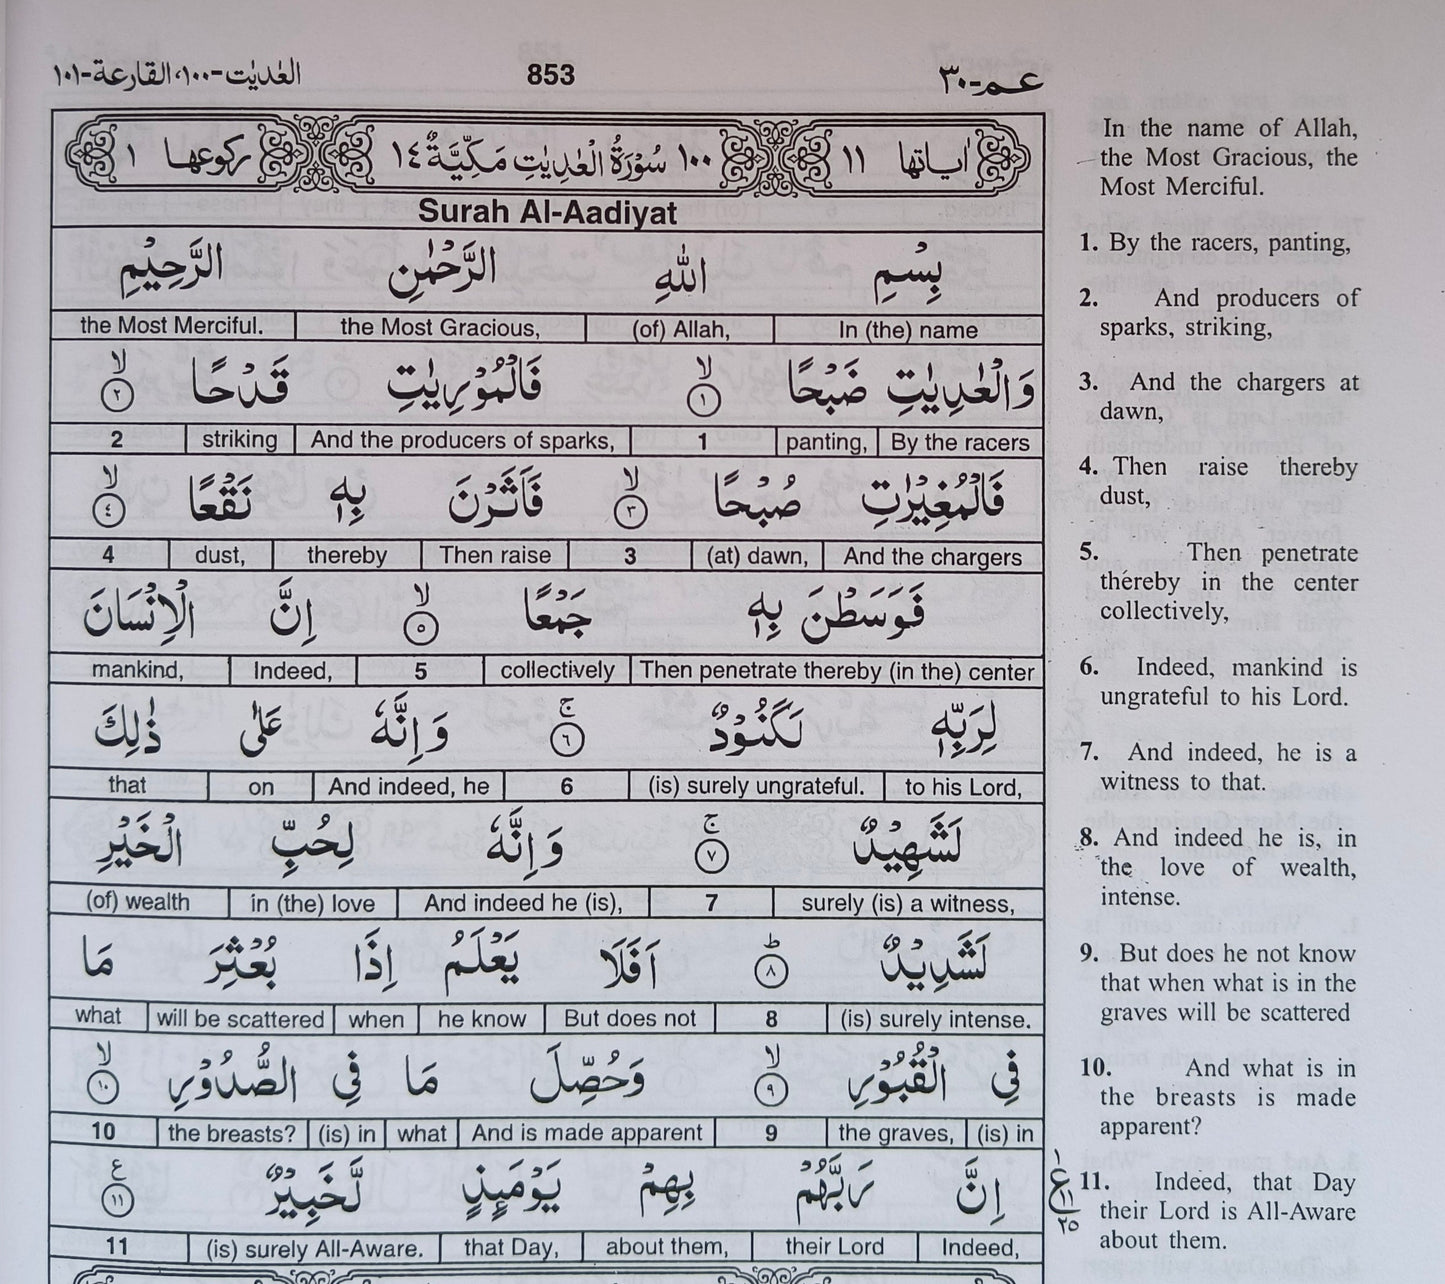 العٰديٰت-١٠٠، القارعة-١٠١ 853 عـم-٣٠
اٰياتها ١١ ١٠٠ سُوْرَةُ الْعٰدِيٰتِ مَكِّيَّةٌ ١٤ ركوعها ١
Surah Al-Aadiyat
بِسْمِ اللّٰهِ الرَّحْمٰنِ الرَّحِيْمِ
the Most Merciful. the Most Gracious, (of) Allah, In (the) name
وَالْعٰدِيٰتِ ضَبْحًا ۙ‏﴿۱﴾ فَالْمُوْرِيٰتِ قَدْحًا ۙ‏﴿۲﴾
2 striking And the producers of sparks, 1 panting, By the racers
فَالْمُغِيْرٰتِ صُبْحًا ۙ‏﴿۳﴾ فَاَثَرْنَ بِهٖ نَقْعًا ۙ‏﴿۴﴾
4 dust, thereby Then raise 3 (at) dawn, And the chargers
فَوَسَطْنَ بِهٖ جَمْعًا ۙ‏﴿۵﴾ اِنَّ الْاِنْسَانَ
mankind, Indeed, 5 collectively Then penetrate thereby (in the) center
لِرَبِّهٖ لَكَنُوْدٌ ۚ‏﴿۶﴾ وَاِنَّهٗ عَلٰى ذٰلِكَ
that on And indeed, he 6 (is) surely ungrateful. to his Lord,
لَشَهِيْدٌ ۚ‏﴿۷﴾ وَاِنَّهٗ لِحُبِّ الْخَيْرِ
(of) wealth in (the) love And indeed he (is), 7 surely (is) a witness,
لَشَدِيْدٌ ؕ‏﴿۸﴾ اَفَلَا يَعْلَمُ اِذَا بُعْثِرَ مَا
what will be scattered when he know But does not 8 (is) surely intense.
فِي الْقُبُوْرِ ۙ‏﴿۹﴾ وَحُصِّلَ مَا فِي الصُّدُوْرِ ۙ‏﴿۱۰﴾
10 the breasts? (is) in what And is made apparent 9 the graves, (is) in
اِنَّ رَبَّهُمْ بِهِمْ يَوْمَىِٕذٍ لَّخَبِيْرٌ ع ﴿۱۱﴾
11 (is) surely All-Aware. that Day, about them, their Lord Indeed,
In the name of Allah,
the Most Gracious, the
Most Merciful.
1. By the racers, panting,
2. And producers of
sparks, striking,
3. And the chargers at
dawn,
4. Then raise thereby
dust,
5. Then penetrate
thereby in the center
collectively,
6. Indeed, mankind is
ungrateful to his Lord.
7. And indeed, he is a
witness to that.
8. And indeed he is, in
the love of wealth,
intense.
9. But does he not know
that when what is in the
graves will be scattered
10. And what is in
the breasts is made
apparent?
١
ع ١١
٢٥
11. Indeed, that Day
their Lord is All-Aware
about them.